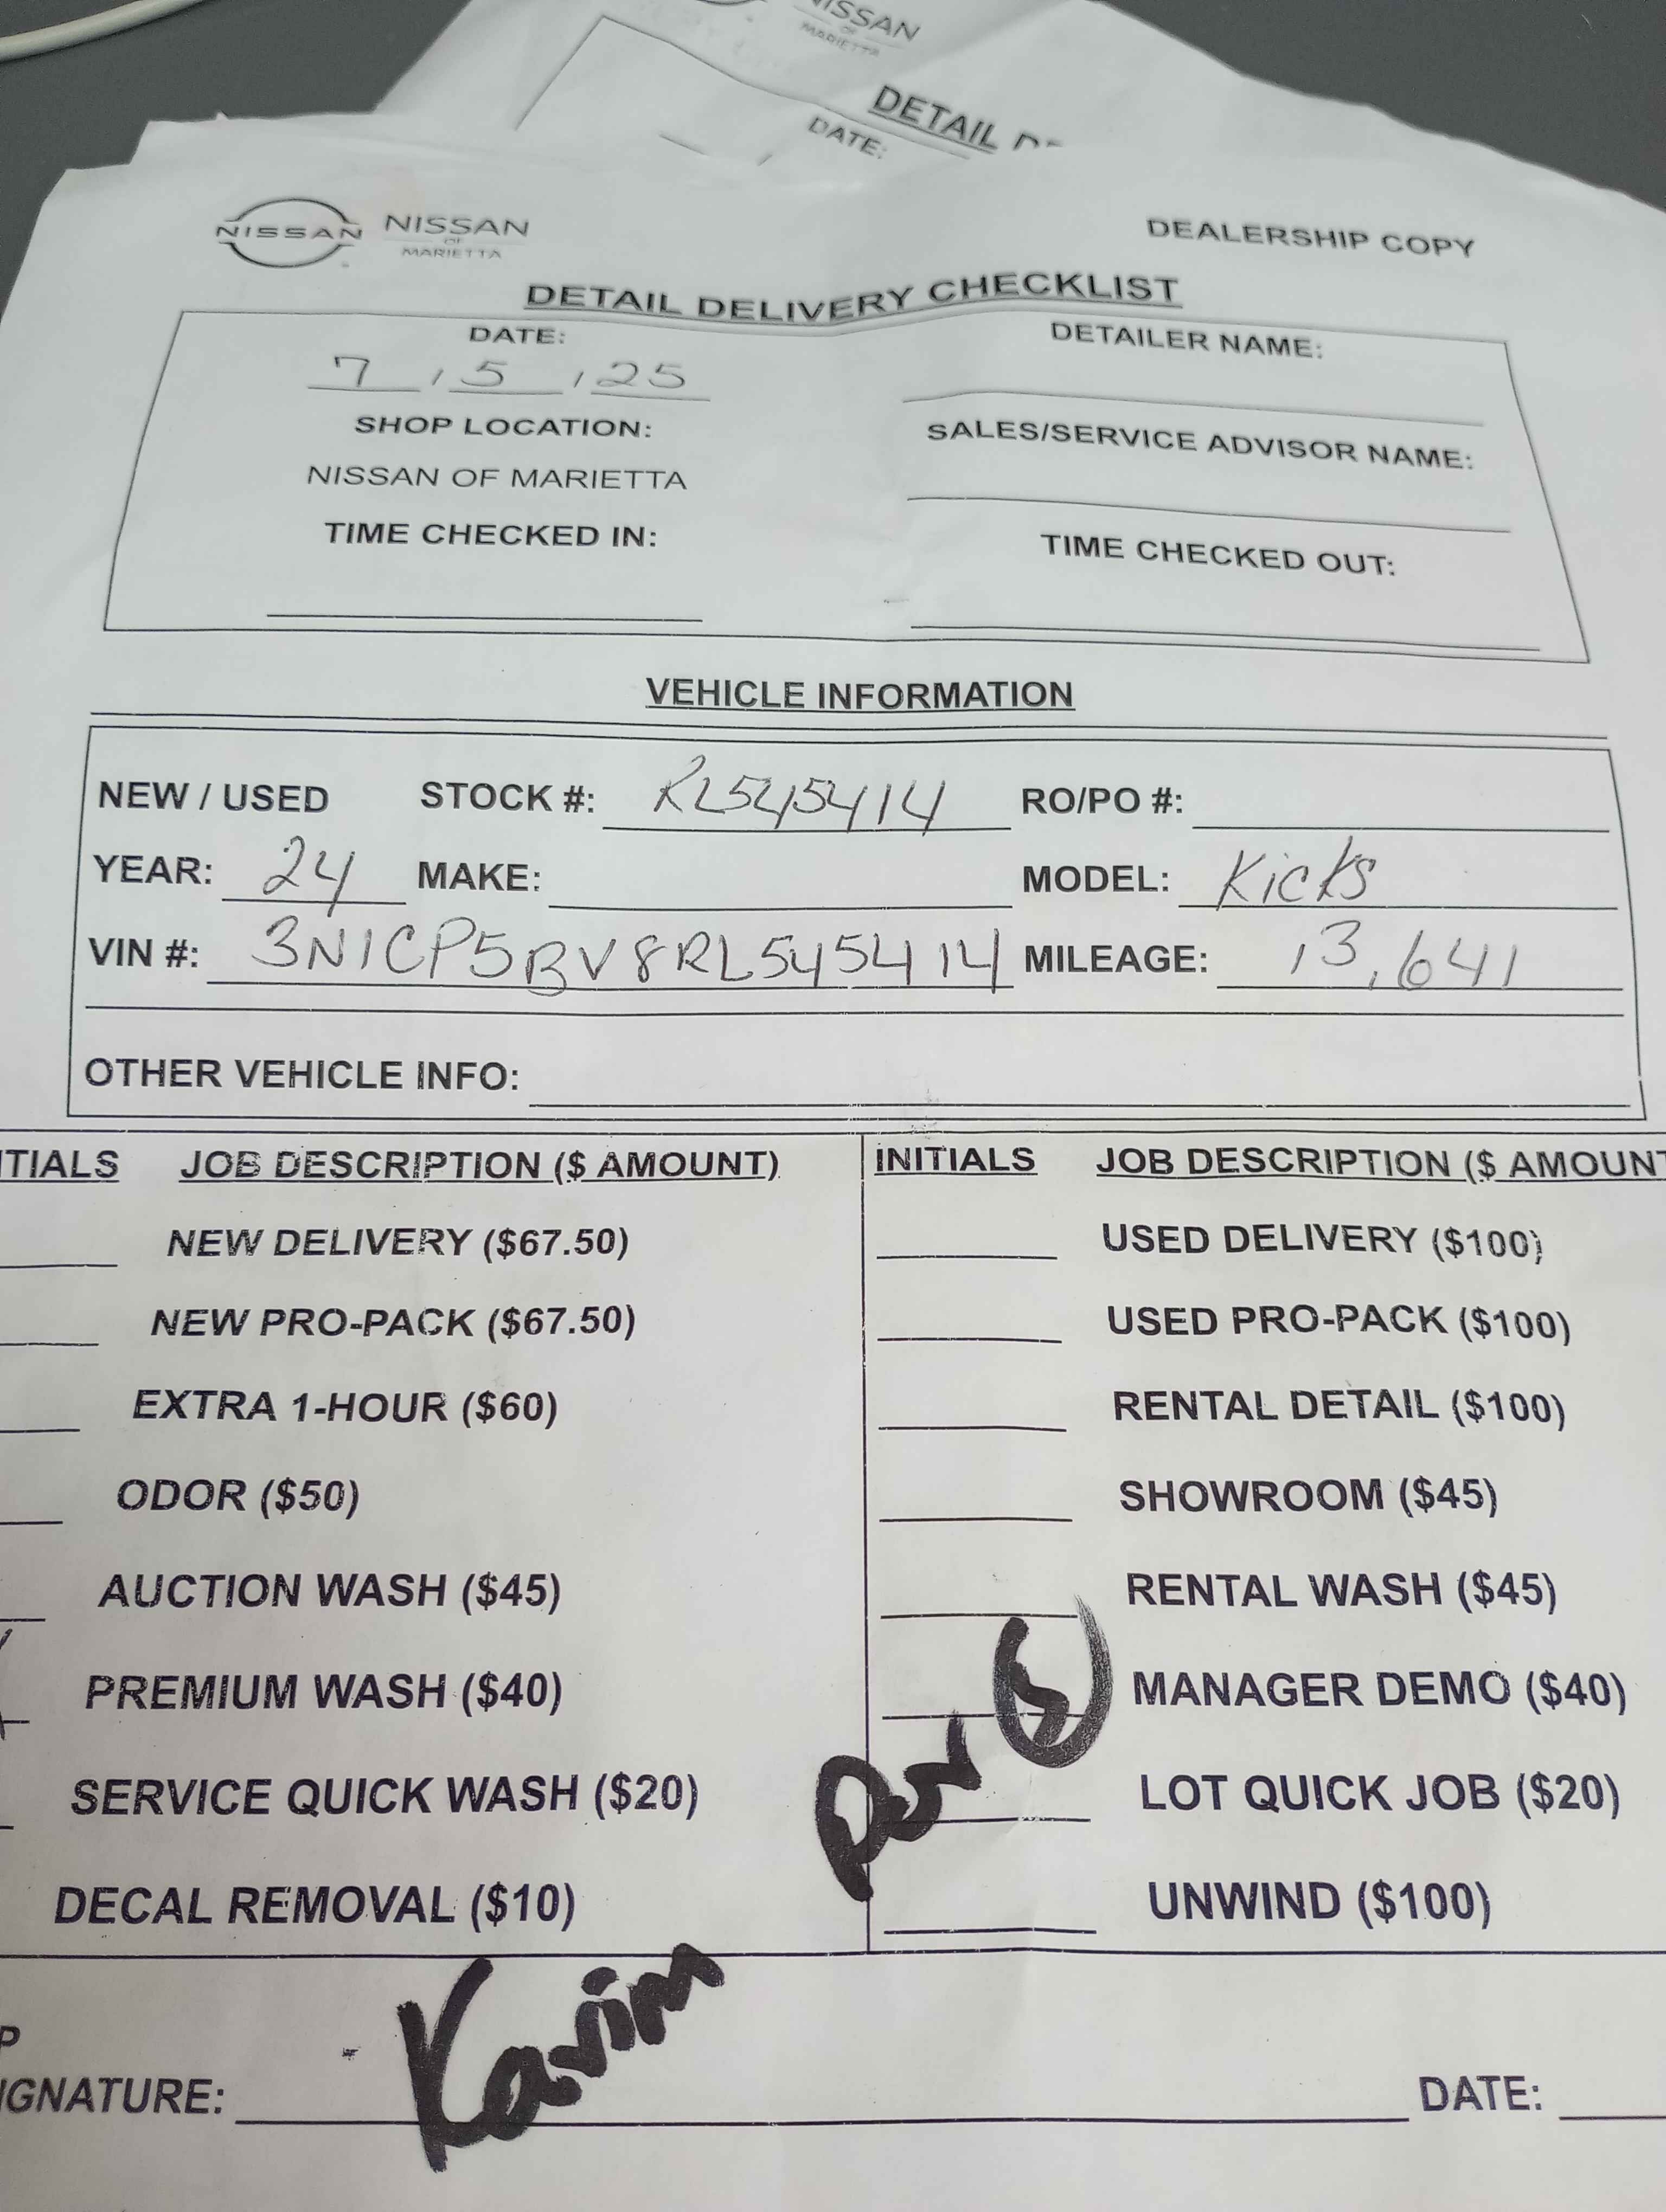 NISSAN
OF
MARIETTA
DETAIL
DATE:
NISSAN NISSAN
OF
MARIETTA
DEALERSHIP COPY
DETAIL DELIVERY CHECKLIST
DATE: DETAILER NAME:
7 / 5 / 25
SHOP LOCATION: SALES/SERVICE ADVISOR NAME:
NISSAN OF MARIETTA
TIME CHECKED IN: TIME CHECKED OUT:
VEHICLE INFORMATION
NEW / USED STOCK #: RL545414 RO/PO #:
YEAR: 24 MAKE: MODEL: Kicks
VIN #: 3N1CP5BV8RL545414 MILEAGE: 13,641
OTHER VEHICLE INFO:
TIALS JOB DESCRIPTION ($ AMOUNT) INITIALS JOB DESCRIPTION ($ AMOUNT
NEW DELIVERY ($67.50) USED DELIVERY ($100)
NEW PRO-PACK ($67.50) USED PRO-PACK ($100)
EXTRA 1-HOUR ($60) RENTAL DETAIL ($100)
ODOR ($50) SHOWROOM ($45)
AUCTION WASH ($45) RENTAL WASH ($45)
PREMIUM WASH ($40) MANAGER DEMO ($40)
SERVICE QUICK WASH ($20) LOT QUICK JOB ($20)
DECAL REMOVAL ($10) UNWIND ($100)
Karim
P
IGNATURE: DATE: